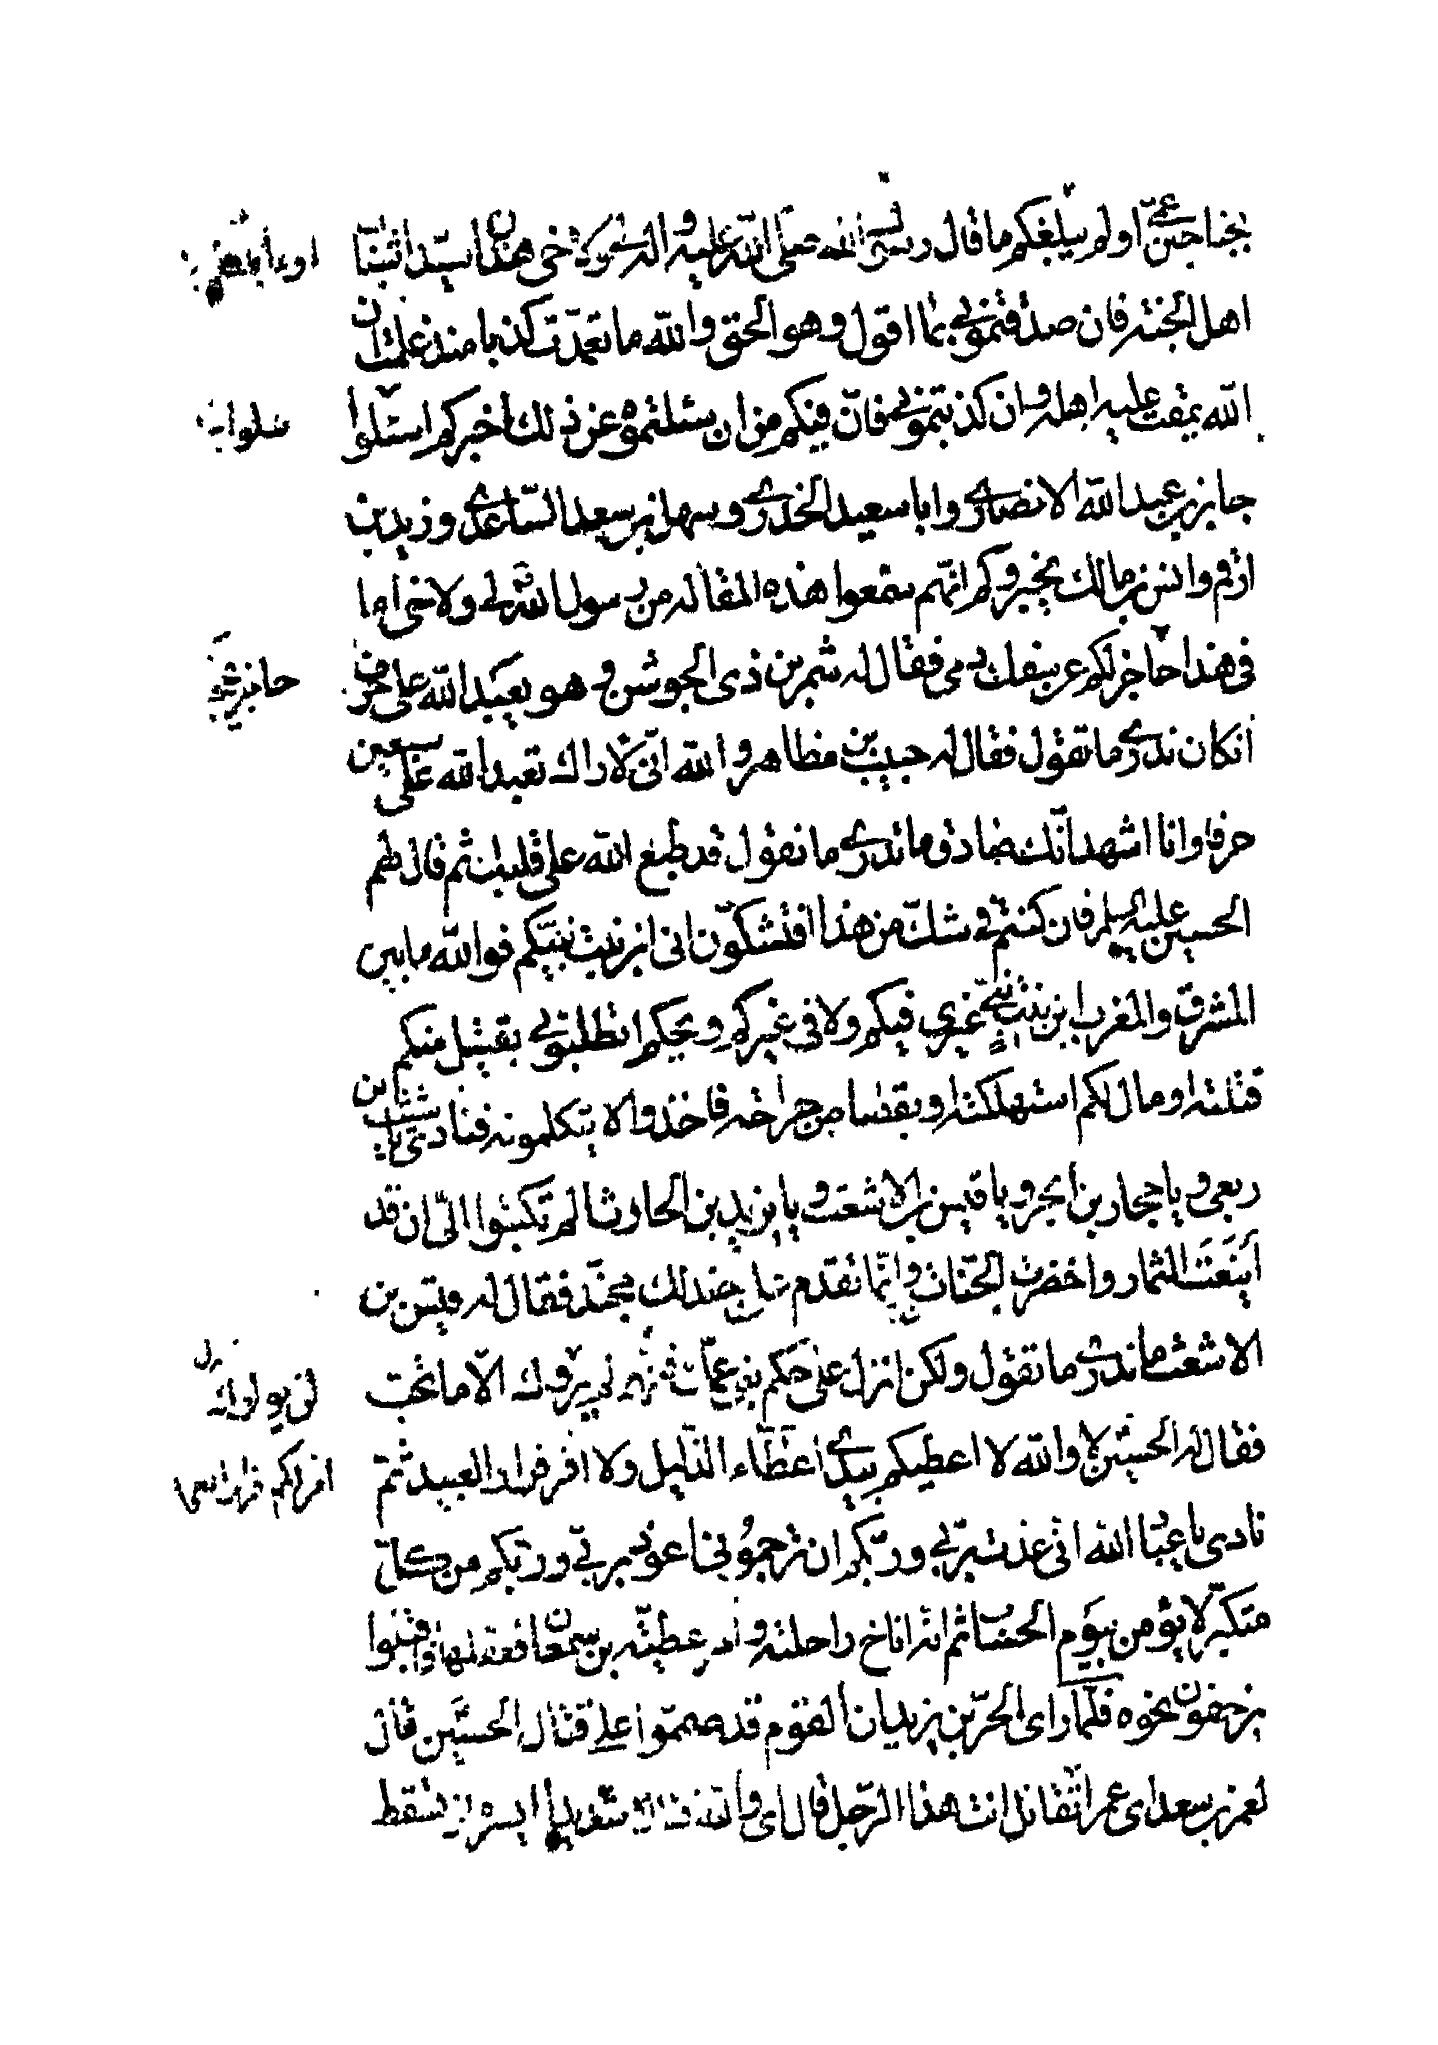 بجناحين عمّي اولم يبلغكم ما قال رسول الله صلى الله عليه واله لي ولاخي هذان سيّدا شباب
اهل الجنة فان صدقتموني بما اقول وهو الحق والله ما تعمدّت كذبا منذ علمت ان
الله يمقت عليه اهله وان كذبتموني فانّ فيكم من ان سئلتموه عن ذلك اخبركم اسئلوا
جابر بن عبد الله الانصاري وابا سعيد الخدري وسهل بن سعد الساعدي وزيد بن
ارقم وانس بن مالك يخبروكم انّهم سمعوا هذه المقالة من رسول الله لي ولاخي اما
في هذا حاجز لكم عن سفك دمي فقال له شمر بن ذي الجوشن وهو يعبد الله على حرف
ان كان ندري ما تقول فقال له حبيب بن مظاهر والله انّي لاراك تعبد الله على سبعين
حرفا وانا اشهد انّك صادق ما ندري ما تقول قد طبع الله على قلبك ثم قال لهم
الحسين عليه السلم فان كنتم في شكّ من هذا افتشكّون اني ابن بنت نبيّكم فوالله ما بين
المشرق والمغرب ابن بنت نبيّ غيري فيكم ولا في غيركم ويحكم اتطلبوني بقتيل منكم
قتلته او مال لكم استهلكته او بقصاص جراحة فاخذوا لا يتكلمونه فنادى يا شبث بن
ربعي و يا حجار بن ابجر و يا قيس بن الاشعث و يا يزيد بن الحارث الم تكتبوا اليّ ان قد
أينَعَت الثمار واخضرّت الجنّات وانّما تقدم على جند لك مجنّد فقال له قيس بن
الاشعث ما ندري ما تقول ولكن انزل على حكم بني عمّك فانهم لن يروك الّا ما تحب
فقال له الحسين لا والله لا اعطيكم بيدي اعطاء الذليل ولا افر فرار العبيد ثم
نادى يا عباد الله انّي عذت بربّي وربّكم ان ترجموني اعوذ بربّي وربّكم من كلّ
متكبّر لا يؤمن بيوم الحساب ثم انه اناخ راحلته وامر عقبة بن سمعان فعقلها واقبلوا
يزحفون نحوه فلمّا راى الحرّ بن يزيد ان القوم قد صمّموا على قتال الحسين قال
لعمر بن سعد اي عمر اتقاتل انت هذا الرجل قال اي والله قتالا شديدا ايسره ان تسقط